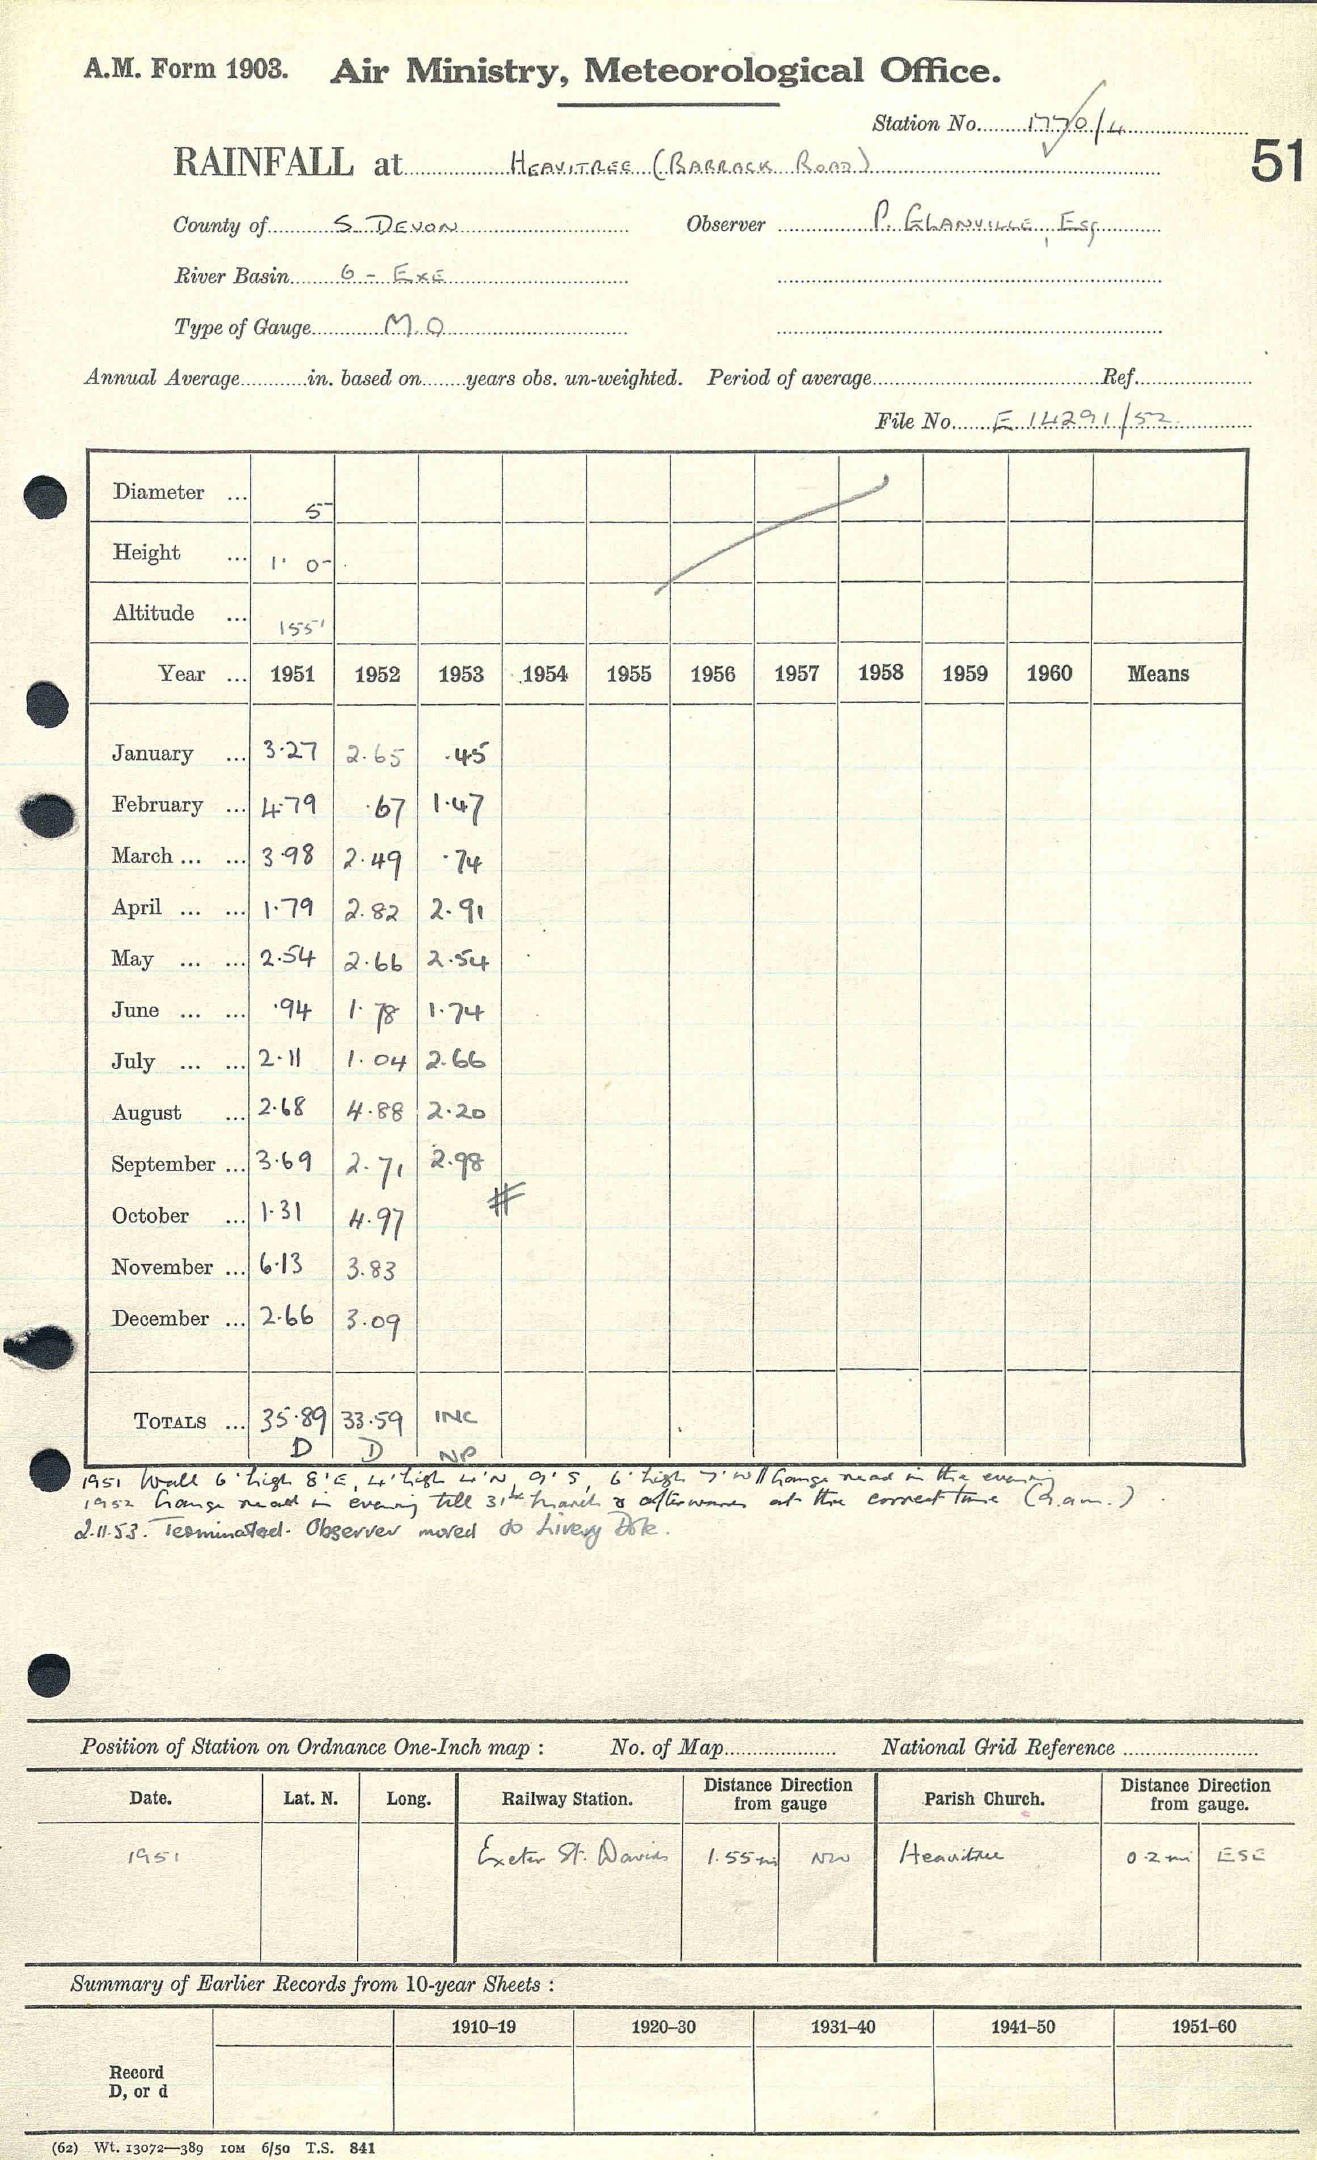 A.M. Form 1903. Air Ministry, Meteorological Office.
Station No. 1770/4
51
RAINFALL at HEAVITREE (BARRACK ROAD)
County of S. DEVON Observer P. GLANVILLE, Esq
River Basin 6 - EXE
Type of Gauge M.O
Annual Average in. based on years obs. un-weighted. Period of average Ref.
File No. E 14291/52
Diameter ... 5
Height ... 1' 0
Altitude ... 155'
Year ... 1951 1952 1953 1954 1955 1956 1957 1958 1959 1960 Means
January ... 3.27 2.65 .45
February ... 4.79 .67 1.47
March ... ... 3.98 2.49 .74
April ... ... 1.79 2.82 2.91
May ... ... 2.54 2.66 2.54
June ... ... .94 1.78 1.74
July ... ... 2.11 1.04 2.66
August ... 2.68 4.88 2.20
September ... 3.69 2.71 2.98
October ... 1.31 4.97 #
November ... 6.13 3.83
December ... 2.66 3.09
TOTALS ... 35.89 33.59 INC
D D NP
1951 Wall 6' high 8' E, 4' high 4' N, 9' S, 6' high 7' W // Gauge read in the evening
1952 Gauge read in evening till 31st March & afterwards at the correct time (9.a.m.).
2.11.53. Terminated. Observer moved to Livery Dole.
Position of Station on Ordnance One-Inch map : No. of Map National Grid Reference
Date. Lat. N. Long. Railway Station. Distance Direction from gauge Parish Church. Distance Direction from gauge.
1951 Exeter St. Davids 1.55 mi NW Heavitree 0.2 mi ESE
Summary of Earlier Records from 10-year Sheets :
1910–19 1920–30 1931–40 1941–50 1951–60
Record
D, or d
(62) Wt. 13072—389 10M 6/50 T.S. 841